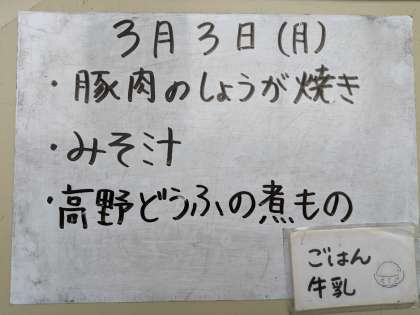 3月3日(月)
・豚肉のしょうが焼き
・みそ汁
・高野どうふの煮もの
ごはん
牛乳